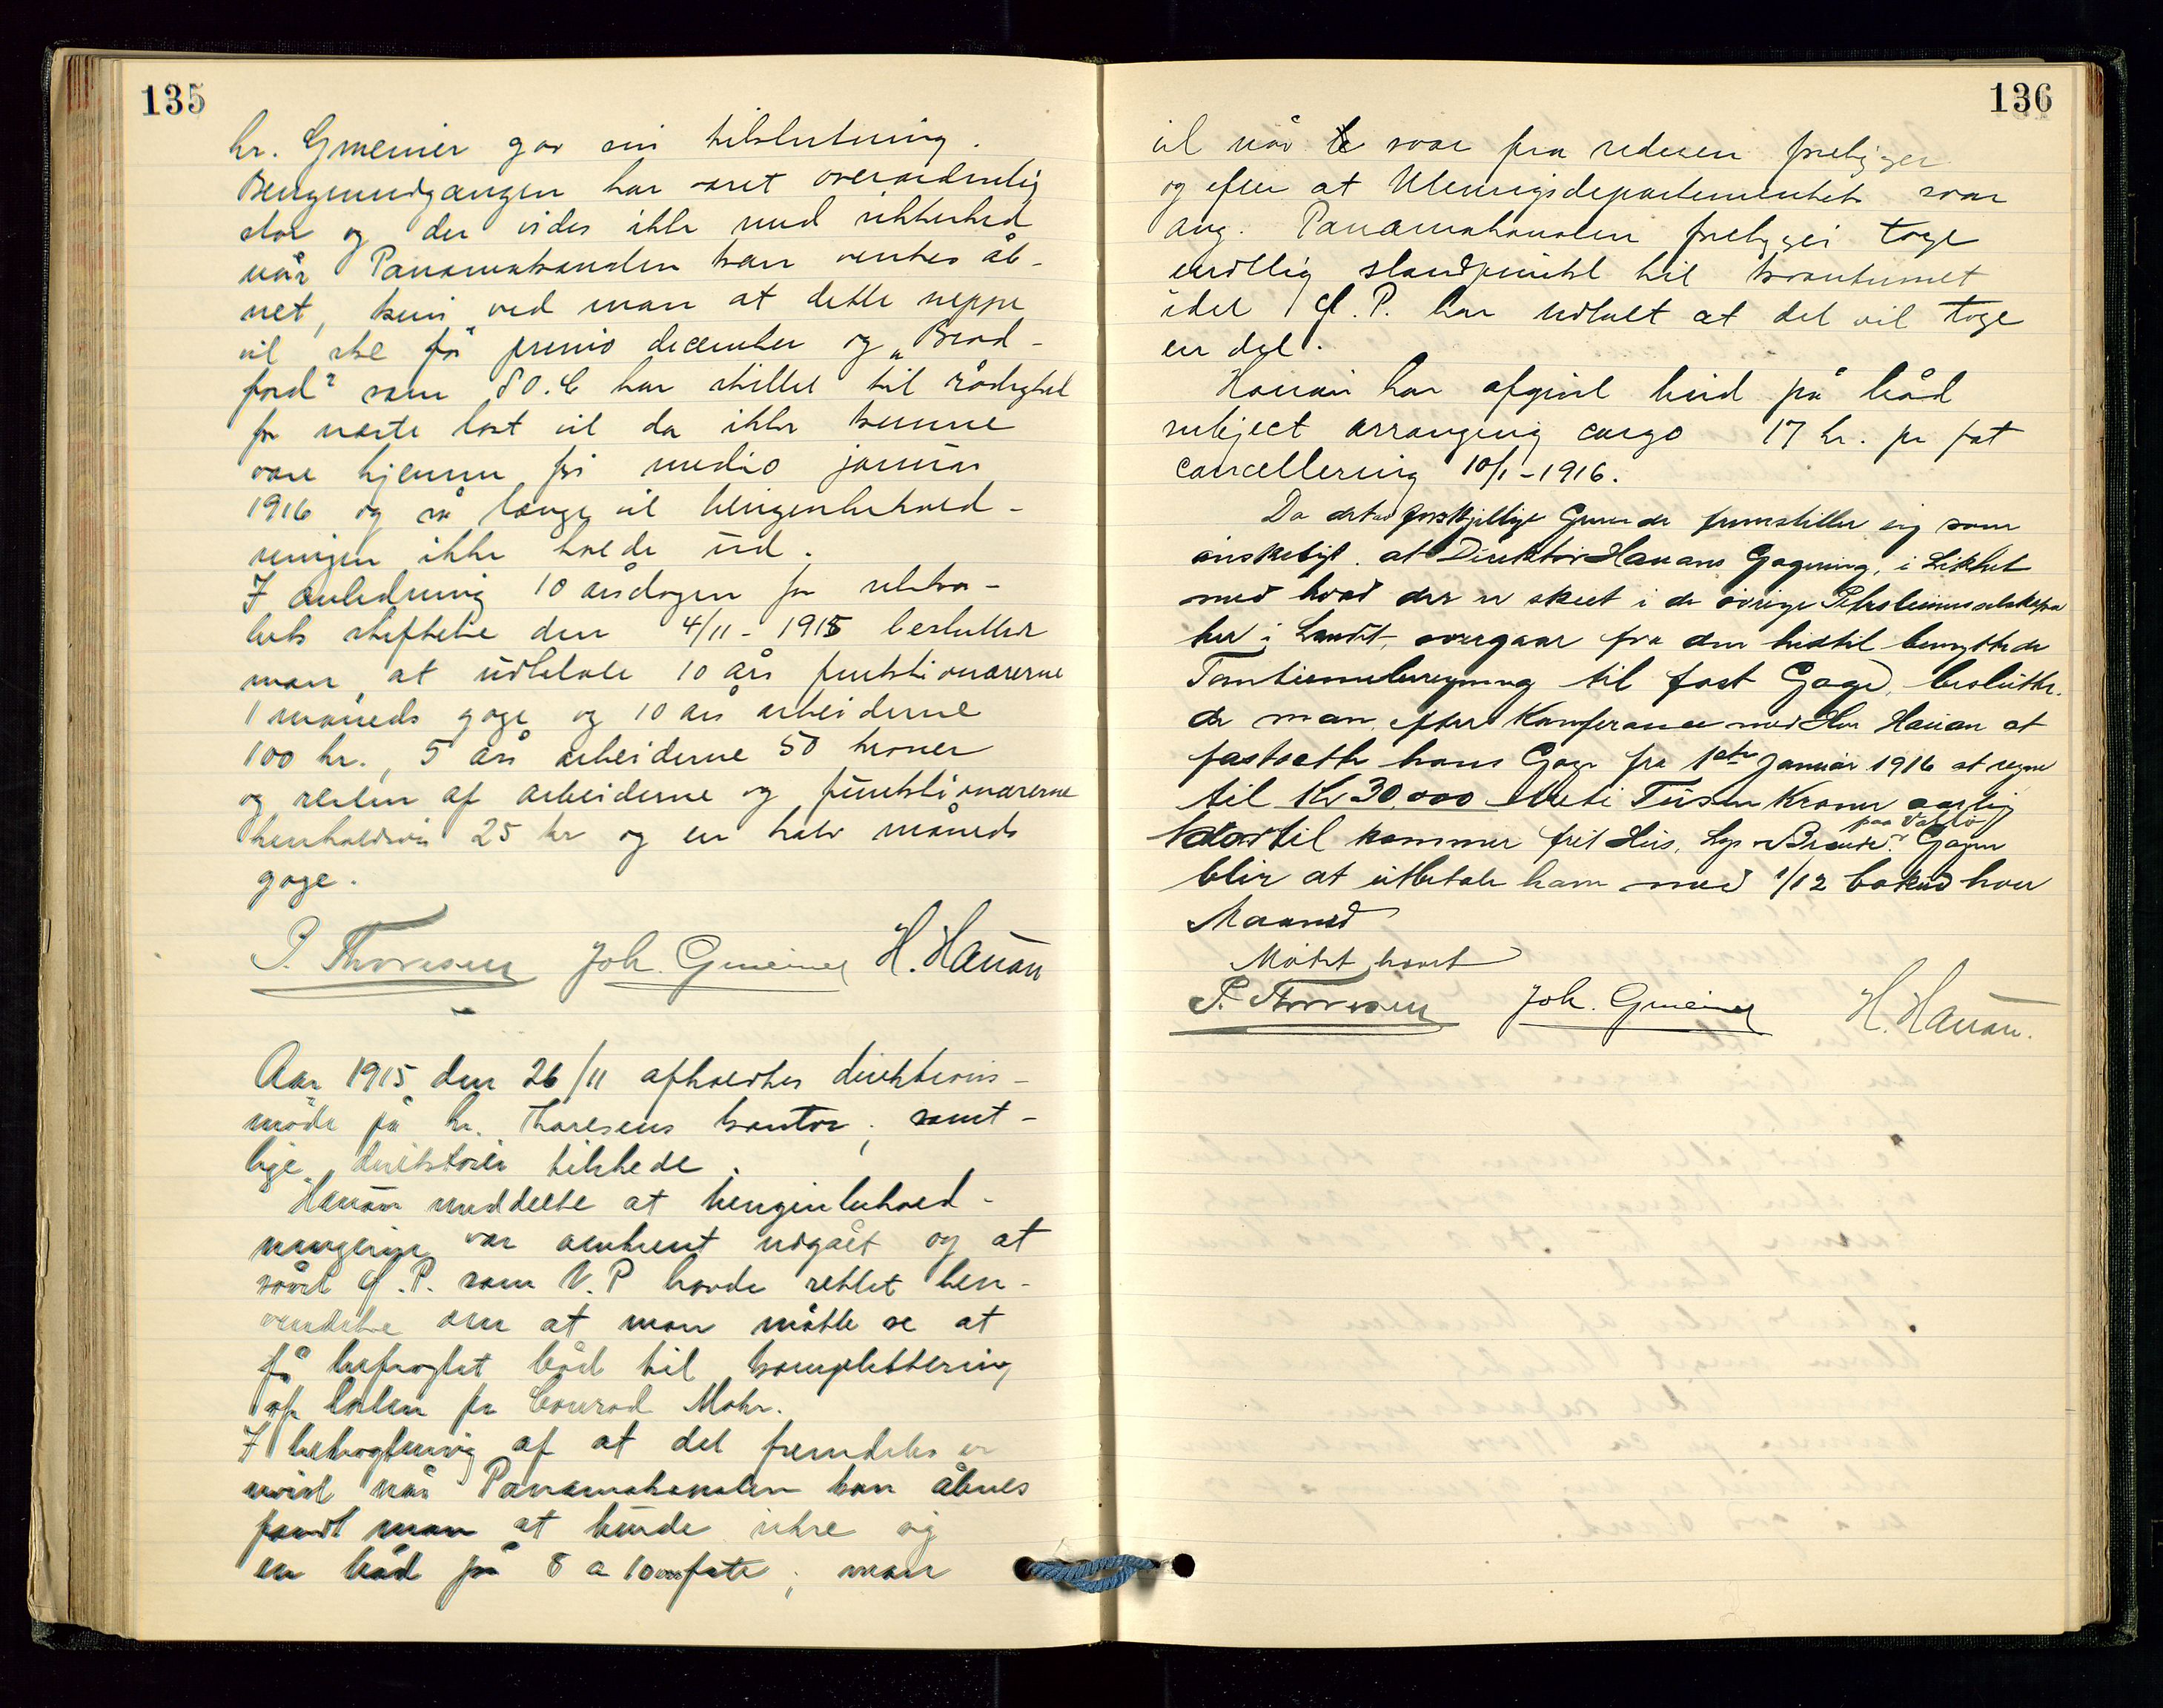 135
hr. Gmeiner gav sin tilslutning.
Benzinudgangen har været overordentlig
stor og der vides ikke med sikkerhed
når Panamakanalen kan ventes åb-
net, kun ved man at dette neppe
vil ske før primo december og „Brad-
ford" som S.O.C har stillet til rådighed
for næste last vil da ikke kunne
være hjemme før medio januar
1916 og så længe vil benzinbehold-
ningen ikke holde ud.
I anledning 10 årsdagen for selska-
bets stiftelse den 4/11-1915 besluttet
man, at udbetale 10 års funktionærerne
1 måneds gage og 10 års arbeiderne
100 kr., 5 års arbeiderne 50 kroner
og resten af arbeiderne og funktionærerne
henholdsvis 25 kr og en halv måneds
gage.
P. Thoresen Joh. Gmeiner H. Hauan
Aar 1915 den 26/11 afholdtes direktions-
møde på hr. Thoresens kontor; samt-
lige direktører tilstede.
Hauan meddelte at benzinbehold-
ningerne var omtrent udgået og at
såvel Ø.P. som V.P havde rettet hen-
vendelse om at man måtte se at
få befragtet båd til komplettering
af lasten pr Conrad Mohr.
I betragtning af at det fremdeles er
uvist når Panamakanalen kan åbnes
fandt man at burde sikre sig
en båd på 8 a 10000 fate; man
136
vil når svar fra rederen foreligger
og efter at Utenrigsdepartementets svar
ang. Panamakanalen foreligger tage
endelig standpunkt til kvantumet
idet Ø.P. har udtalt at det vil tage
en del.
Hauan har afgivt bud på båd
subject arranging cargo 17 kr. pr fat
cancellering 10/1-1916.
Da det av forskjellige Grunde fremstiller sig som
ønskeligt, at Direktør Hauans Gagering, i Likhet
med hvad der er skeet i de øvrige Petroleumsselskaper
her i Landet, overgaar fra den hidtil benyttede
Tantiemeberegning til fast Gage, beslutte-
de man, efter Konferance med Hr Hauan at
fastsætte hans Gage fra 1ste Januar 1916 at regne
til Kr 30.000 Tretti Tusen Kroner aarlig
paa Valløy
Hertil kommer frit Hus, Lys & Brænde. Gagen
blir at utbetale ham med 1/12 bakud hver
Maaned
Møtet hævet
P. Thoresen Joh. Gmeiner H. Hauan.